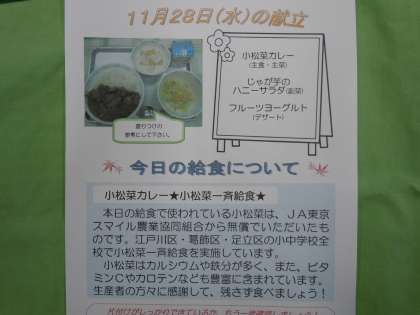 11月28日(水)の献立
小松菜カレー
(主食・主菜)
じゃが芋の
ハニーサラダ(副菜)
フルーツヨーグルト
(デザート)
盛りつけの
参考にして下さい。
今日の給食について
小松菜カレー★小松菜一斉給食★
本日の給食で使われている小松菜は、JA東京
スマイル農業協同組合から無償でいただいたも
のです。江戸川区・葛飾区・足立区の小中学校全
校で小松菜一斉給食を実施しています。
小松菜はカルシウムや鉄分が多く、また、ビタ
ミンCやカロテンなども豊富に含まれています。
生産者の方々に感謝して、残さず食べましょう!